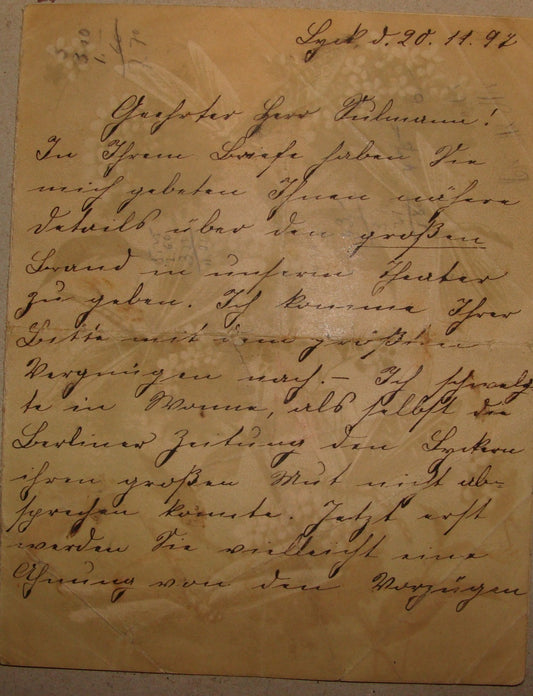 Lyck d. 20. 11. 97
Geehrter Herr Sulmann!
In Ihrem Briefe haben Sie
mich gebeten Ihnen nähere
Details über den großen
Brand in unserm Theater
zu geben. Ich komme Ihrer
Bitte mit dem größten
Vergnügen nach. – Ich schwelg
te in Wonne, als selbst die
Berliner Zeitung den Lyckern
ihren großen Mut nicht ab-
sprechen konnte. Jetzt erst
werden Sie vielleicht eine
Ahnung von den Vorzügen